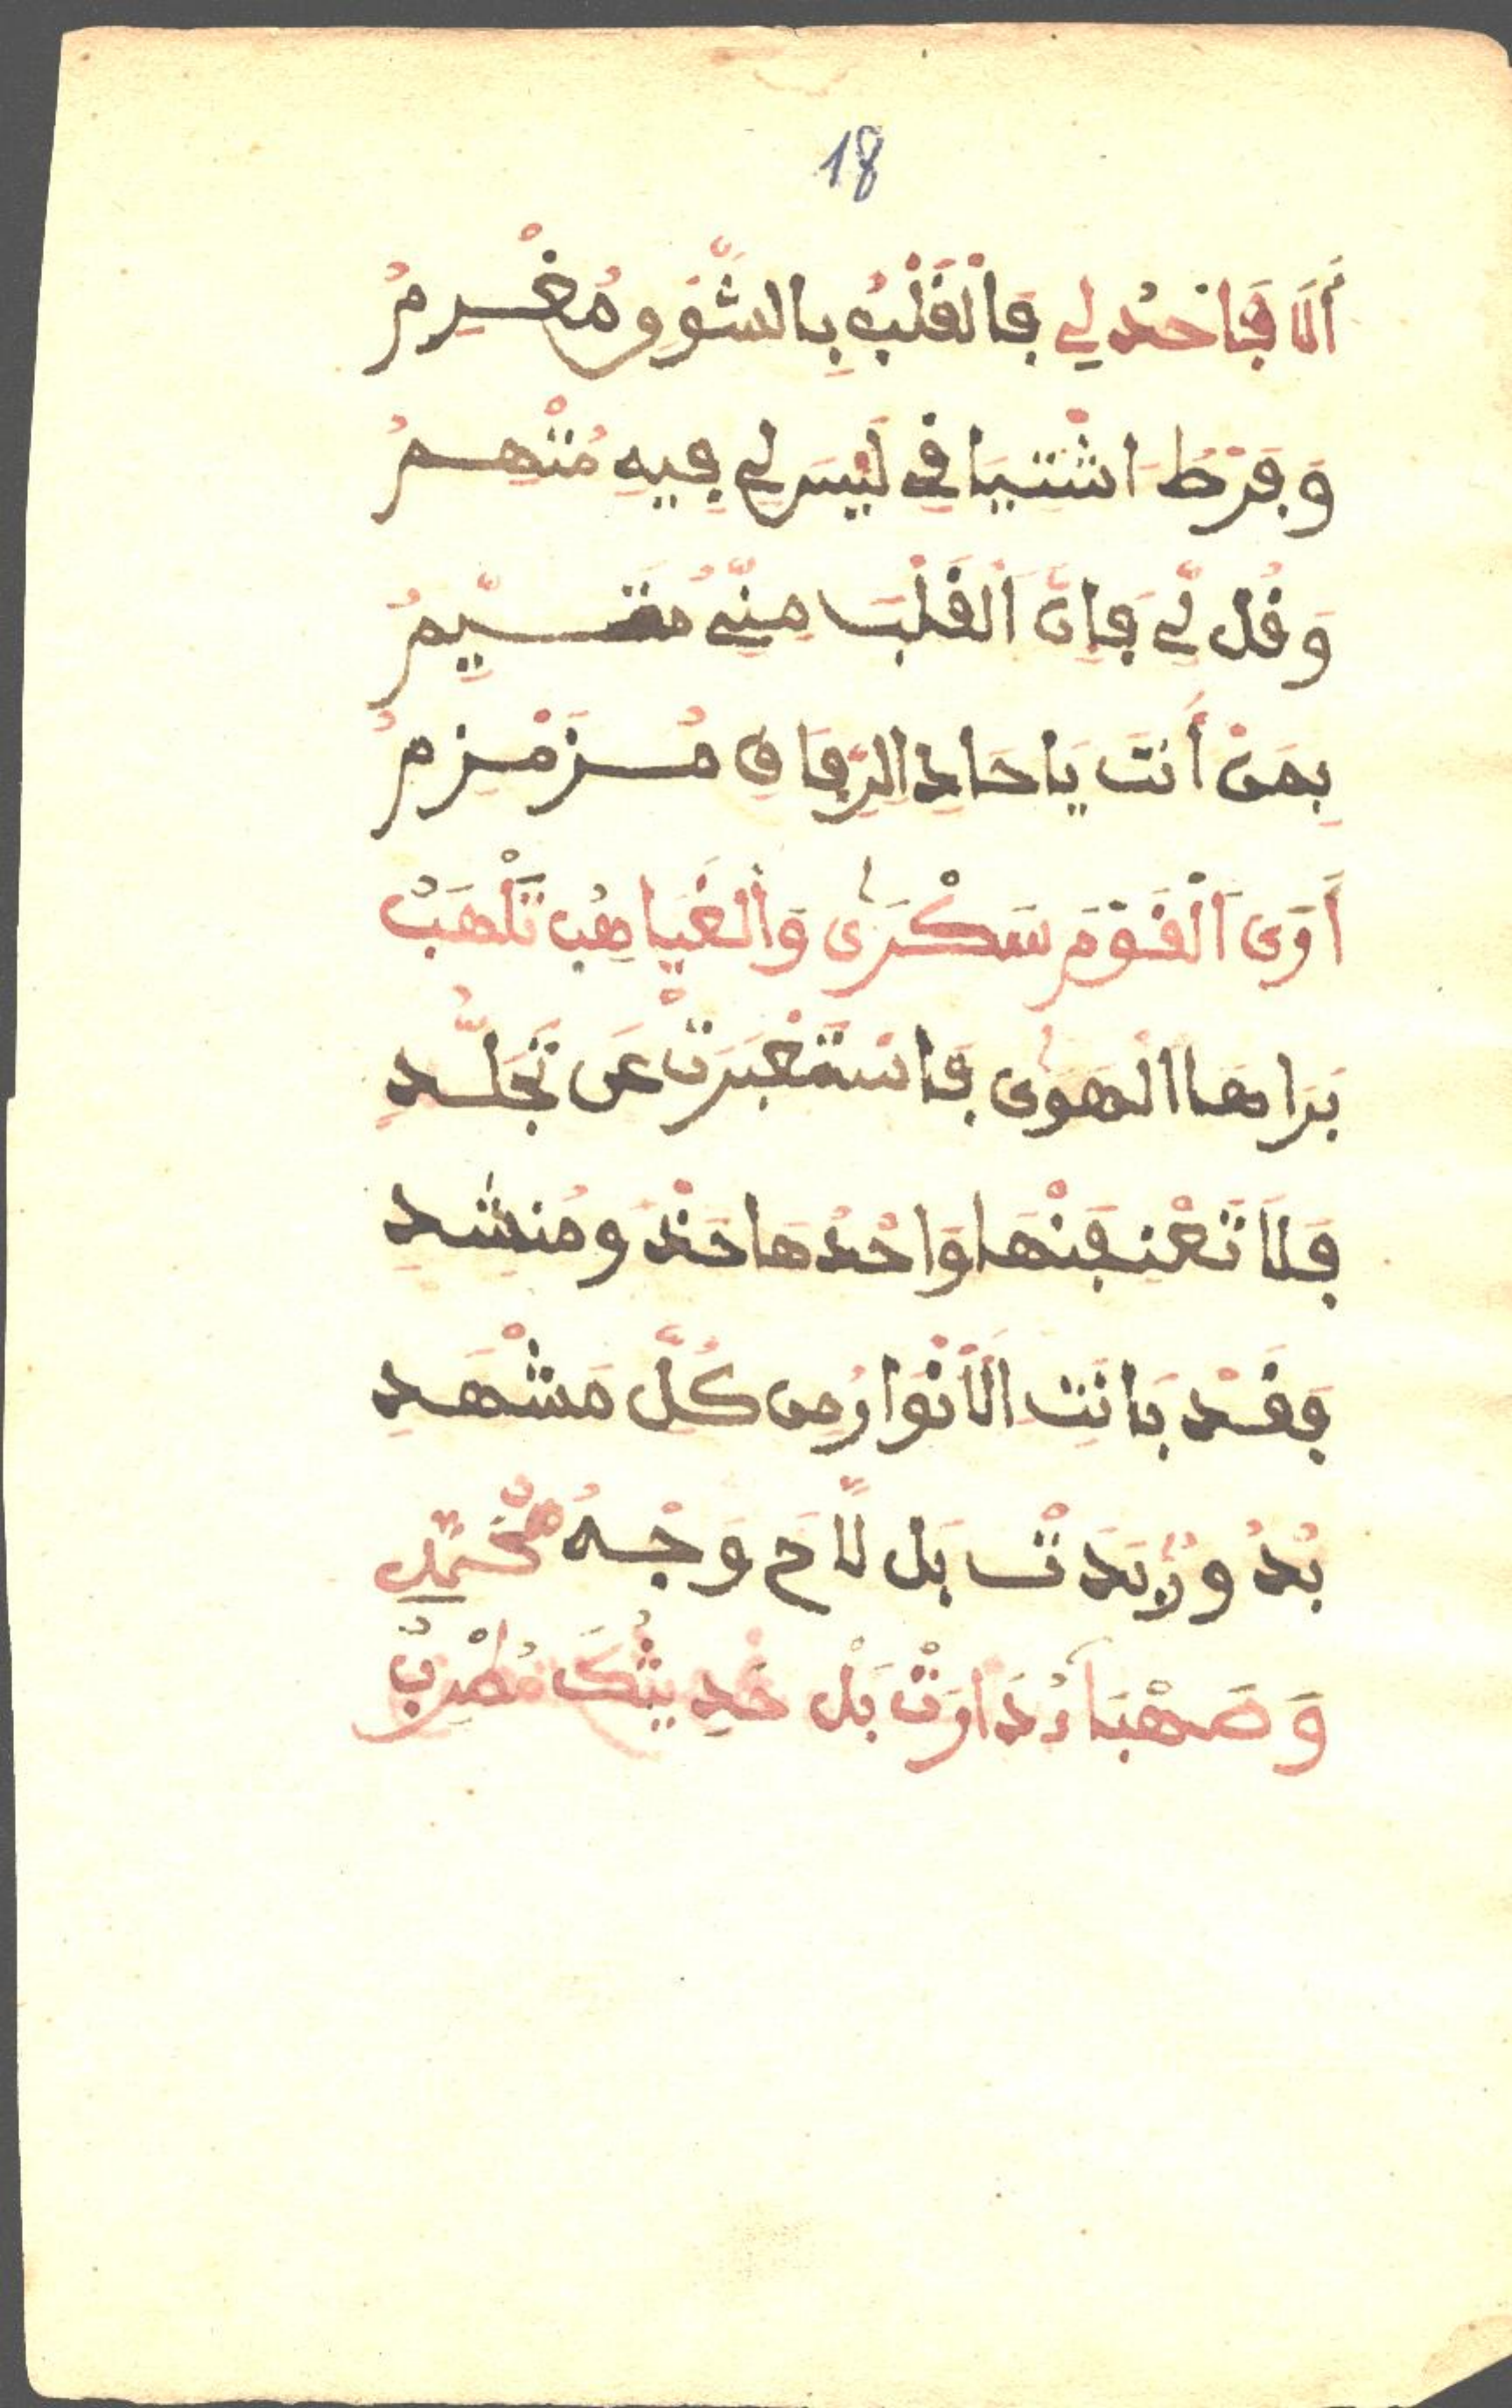 18
أَلَا فَاحْدُ لِي فَالْقَلْبُ بِالشَّوْقِ مُغْرِمُ
وَفَرْطُ اشْتِيَافِي لَيْسَ لِي فِيهِ مُتْهِمُ
وَقُل لِّي فَإِنَّ الْقَلْبَ مِنِّي مُقَسِيِّمُ
بِمَنْ أَنتَ يَا حَادِ الرِّفَاقِ مُزَمْزِمُ
أَرَى الْقَوْمَ سَكْرَى وَالْغَيَاهِبُ تَلْهَبُ
بَرَاهَا الْهَوَى فَاسْتَغْبَرَتْ عَن تَجَلُّدِ
فَلَا تَعْنِفَنْهَا وَاحْدُهَا حَدْوَ مُنشِدِ
فَقَدْ بَانَتِ الْأَنْوَارُ مِن كُلِّ مَشْهَدِ
بُدُورٌ بَدَتْ بَل لَّاحَ وَجْهُ مُحَمَّدٍ
وَصَهْبَاءُ دَارَتْ بَلْ حَدِيثُكَ مُطْرِبُ